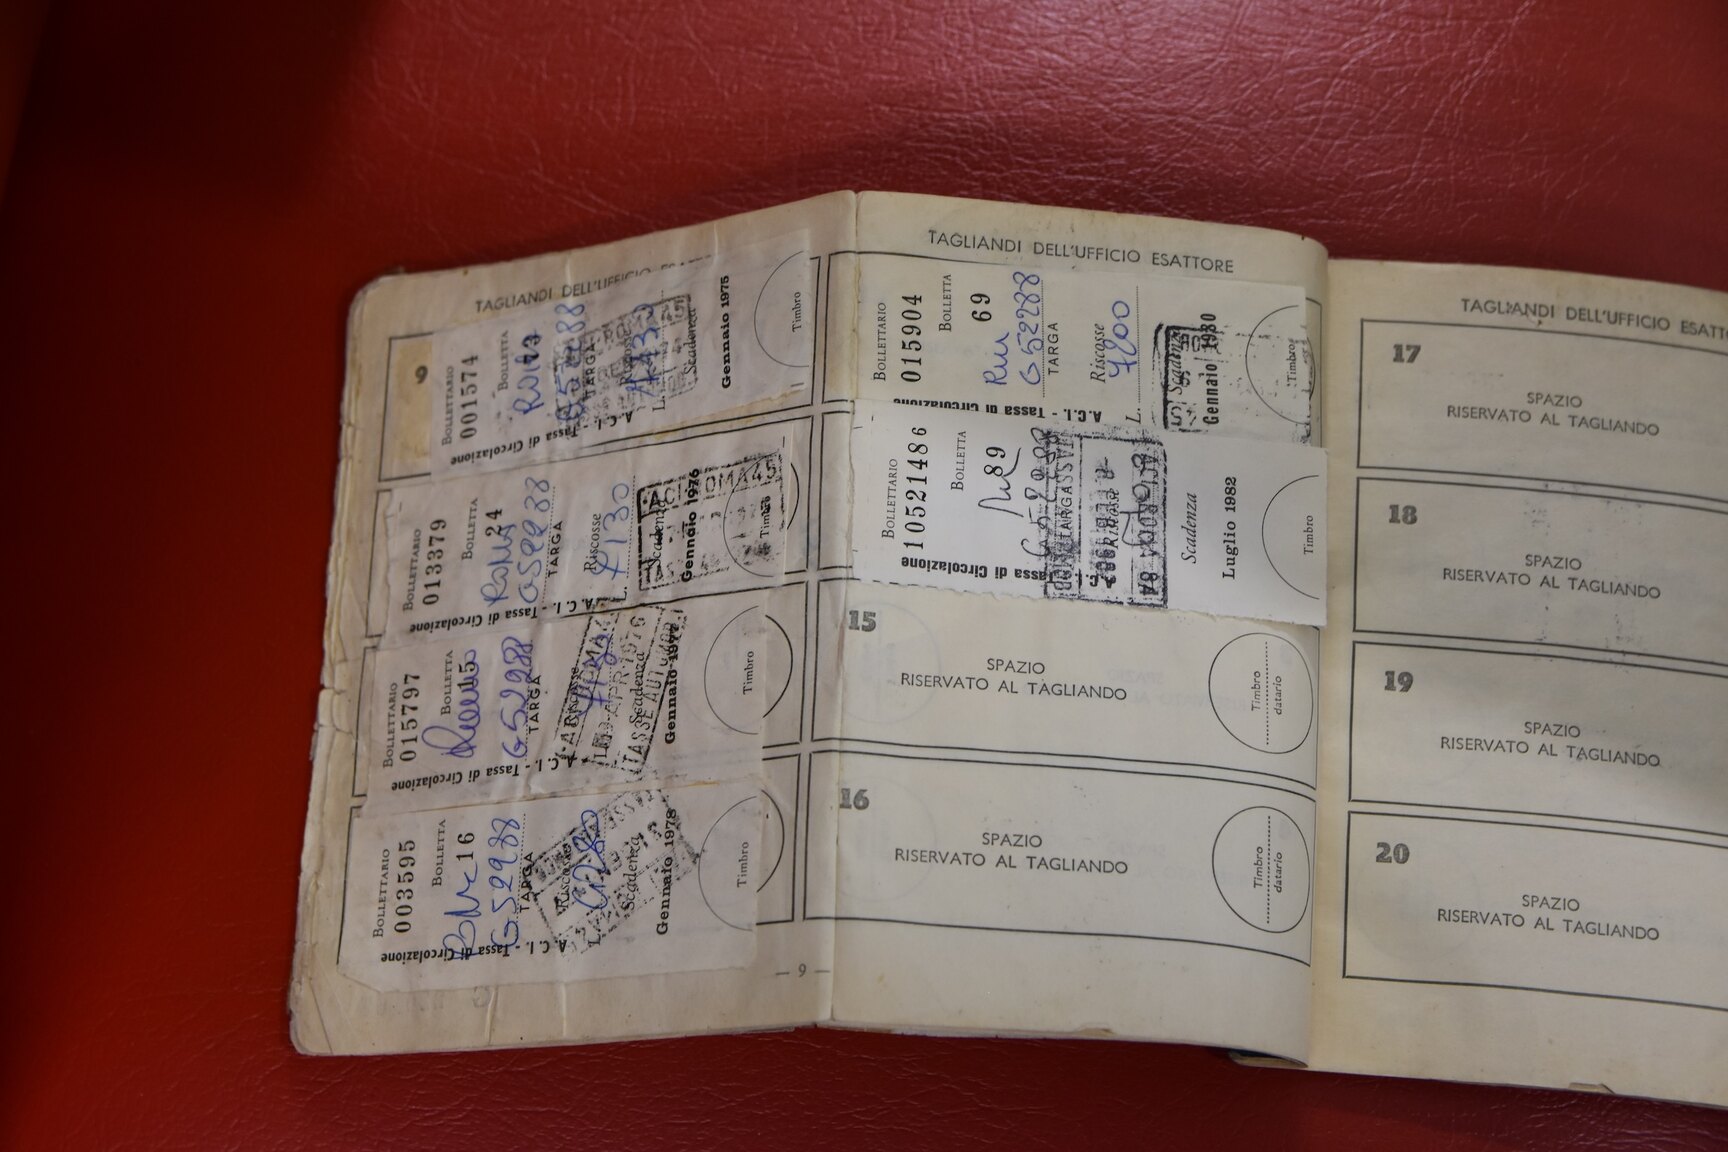 TAGLIANDI DELL'UFFICIO
9
BOLLETTARIO
001574
BOLLETTA
TARGA
Riscosse
L.
Scadenza
Gennaio 1975
Timbro
A.C.I. - Tassa di Circolazione
BOLLETTARIO
013379
BOLLETTA
24
ROMA
TARGA
Riscosse
L. 4130
Scadenza
Gennaio 1976
Timbro
A.C.I. - Tassa di Circolazione
ROMA 45
BOLLETTARIO
015797
BOLLETTA
15
G52988
TARGA
Riscosse
Scadenza
Gennaio 1977
Timbro
A.C.I. - Tassa di Circolazione
BOLLETTARIO
003595
BOLLETTA
16
G52988
TARGA
Riscosse
Scadenza
Gennaio 1978
Timbro
A.C.I. - Tassa di Circolazione
— 9 —
TAGLIANDI DELL'UFFICIO ESATTORE
BOLLETTARIO
015904
BOLLETTA
69
TARGA
Riscosse
L. 7200
Scadenza
Gennaio 1980
Timbro
A.C.I. - Tassa di Circolazione
BOLLETTARIO
10521486
BOLLETTA
89
Riscosse
Scadenza
Luglio 1982
Timbro
A.C.I. - Tassa di Circolazione
15
SPAZIO
RISERVATO AL TAGLIANDO
Timbro
datario
16
SPAZIO
RISERVATO AL TAGLIANDO
Timbro
datario
TAGLIANDI DELL'UFFICIO
17
SPAZIO
RISERVATO AL TAGLIANDO
18
SPAZIO
RISERVATO AL TAGLIANDO
19
SPAZIO
RISERVATO AL TAGLIANDO
20
SPAZIO
RISERVATO AL TAGLIANDO